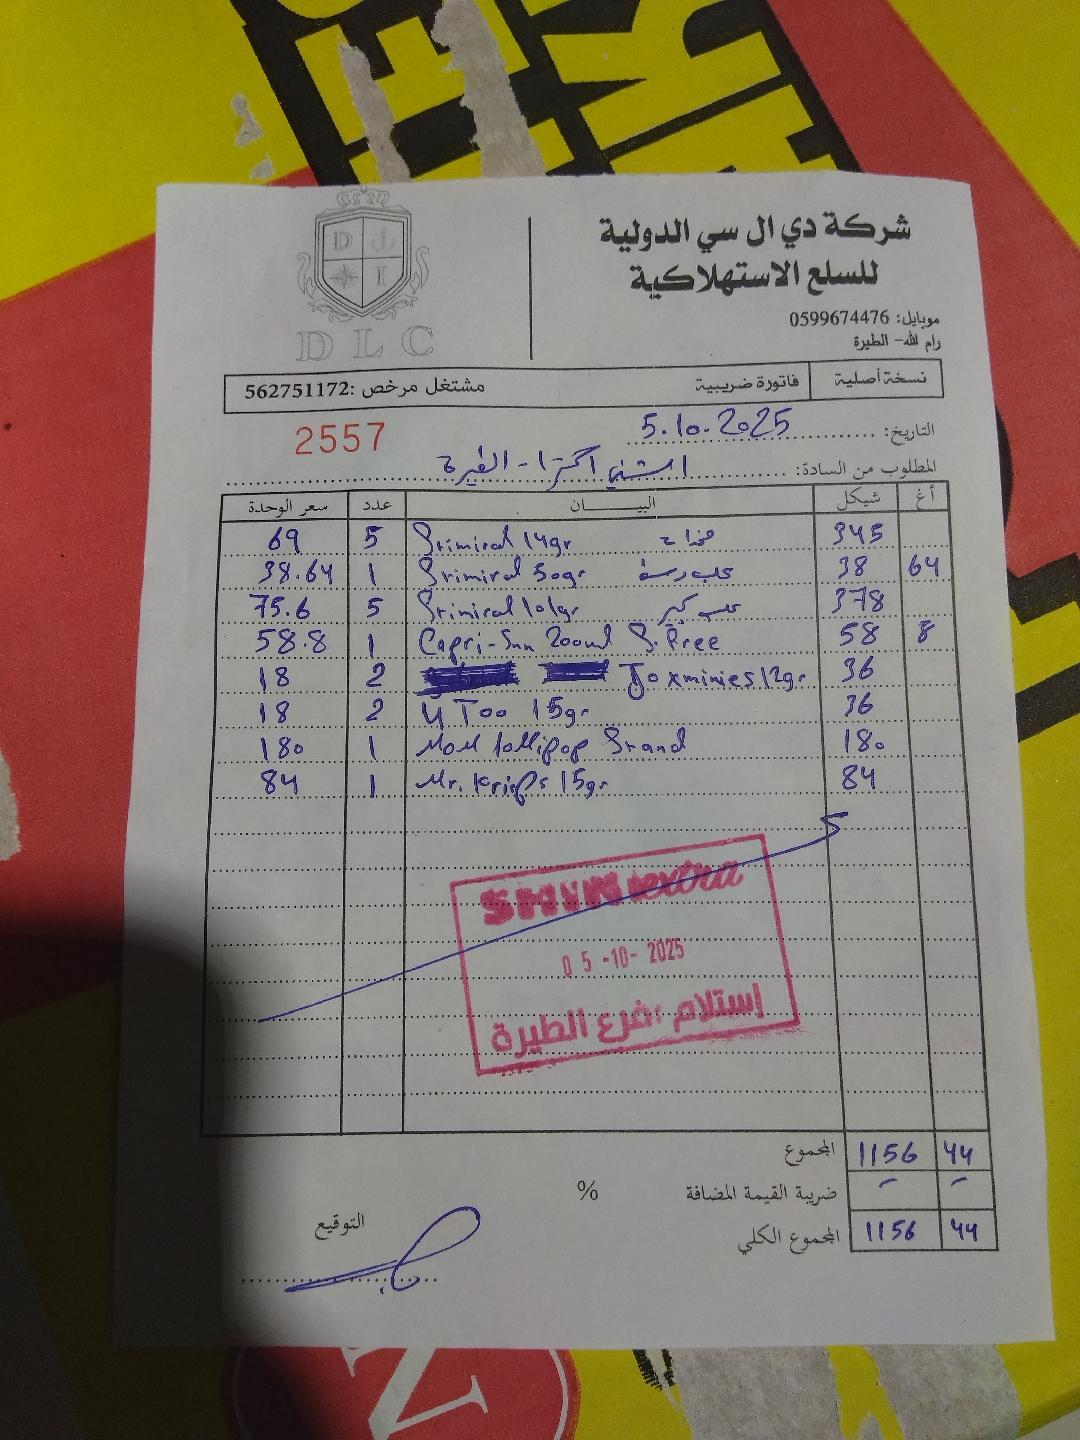 شركة دي ال سي الدولية
للسلع الاستهلاكية
D I
D L C
موبايل: 0599674476
رام الله- الطيرة
نسخة أصلية فاتورة ضريبية مشتغل مرخص :562751172
2557
التاريخ: 5.10.2025
المطلوب من السادة: الشني اكسترا - الطيرة
أغ شيكل البيـــــان عدد سعر الوحدة
69 5 Srimiral 14gr 345
38.64 1 Srimiral 50gr 38 64
75.6 5 Srimiral 101gr علب كبير 378
58.8 1 Capri-Sun 200ml S.Free 58 8
18 2 Joxminies 12gr 36
18 2 U Too 15gr 36
180 1 Mom lollipop Stand 180
84 1 Mr. Krisps 15gr 84
SHINI extra
05-10-2025
إستلام ،فرع الطيرة
المجموع 1156 44
ضريبة القيمة المضافة % - -
المجموع الكلي 1156 44
التوقيع
N